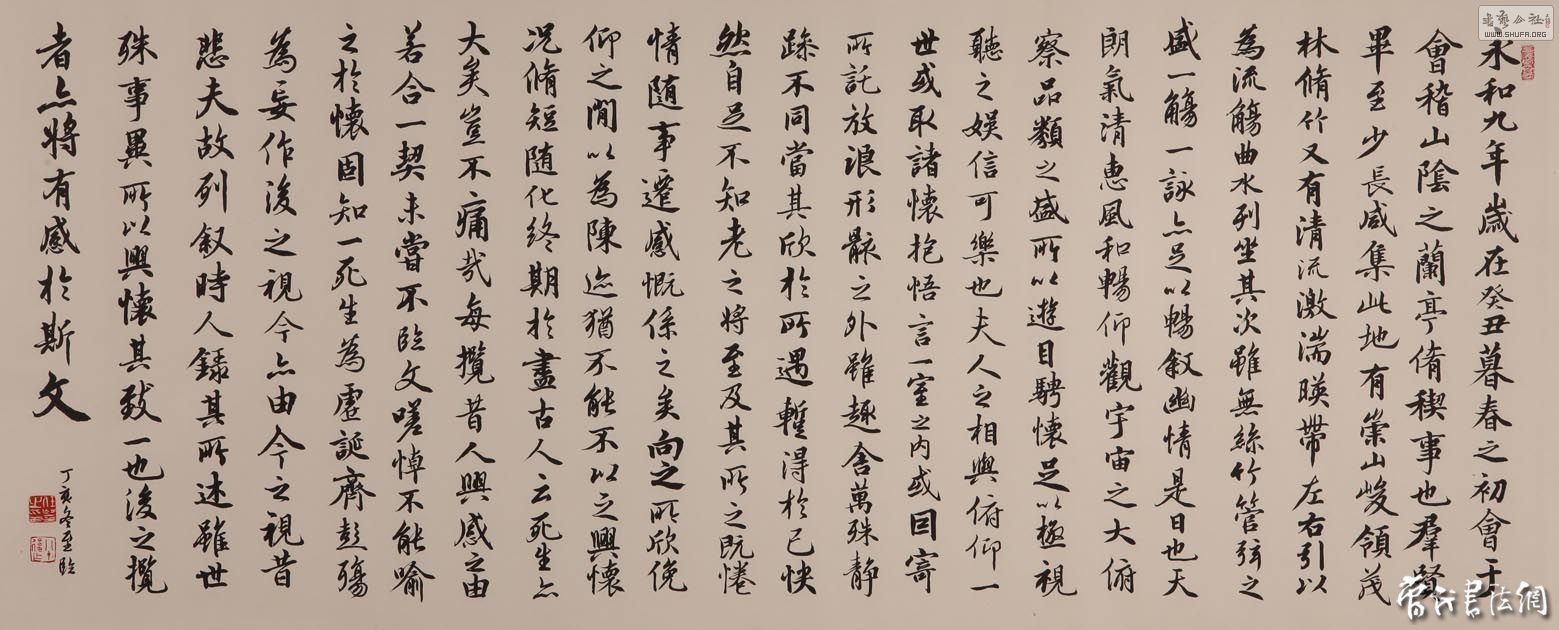 永和九年歲在癸丑暮春之初會于
會稽山陰之蘭亭脩稧事也羣賢
畢至少長咸集此地有崇山峻領茂
林脩竹又有清流激湍暎帶左右引以
為流觴曲水列坐其次雖無絲竹管弦之
盛一觴一詠亦足以暢叙幽情是日也天
朗氣清惠風和暢仰觀宇宙之大俯
察品類之盛所以遊目騁懷足以極視
聽之娛信可樂也夫人之相與俯仰一
世或取諸懷抱悟言一室之內或回寄
所託放浪形骸之外雖趣舍萬殊静
躁不同當其欣於所遇蹔得於己怏
然自足不知老之將至及其所之既惓
情隨事遷感慨係之矣向之所欣俛
仰之閒以為陳迹猶不能不以之興懷
况脩短随化終期於盡古人云死生亦
大矣豈不痛哉每攬昔人興感之由
若合一契未嘗不臨文嗟悼不能喻
之於懷固知一死生為虛誕齊彭殤
為妄作後之視今亦由今之視昔
悲夫故列叙時人錄其所述雖世
殊事異所以興懷其致一也後之攬
者亦將有感於斯文
丁亥冬至臨
書藝公社
WWW.SHUFA.ORG
書法網